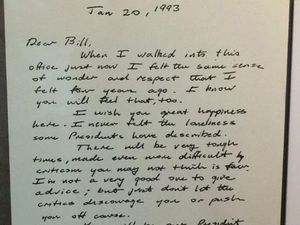 Jan 20, 1993
Dear Bill,
When I walked into this
office just now I felt the same sense
of wonder and respect that I
felt four years ago. I know
you will feel that, too.
I wish you great happiness
here. I never felt the loneliness
some Presidents have described.
There will be very tough
times, made even more difficult by
criticism you may not think is fair.
I'm not a very good one to give
advice; but just don't let the
critics discourage you or push
you off course.
You will be our President